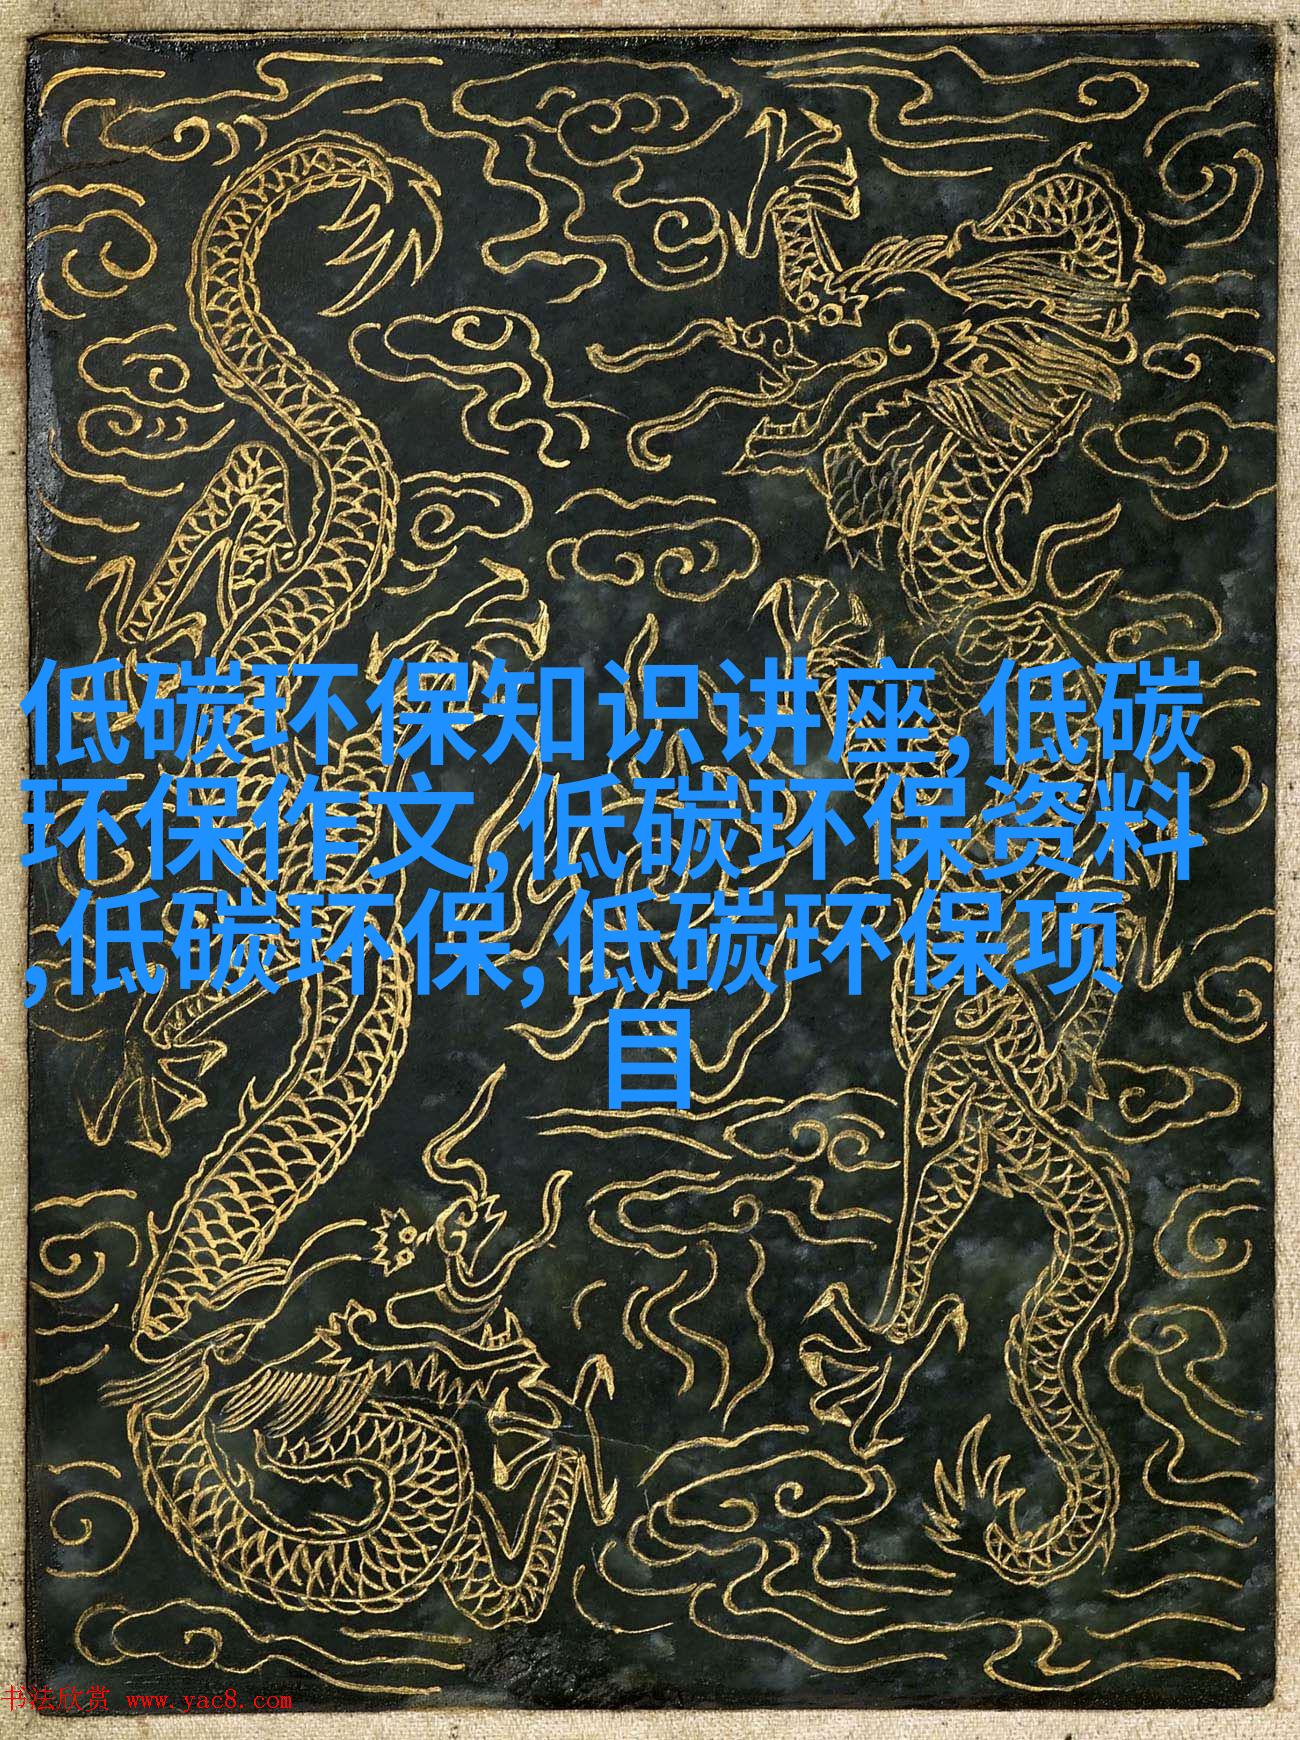 低碳环保知识讲座,低碳
环保作文,低碳环保资料
,低碳环保,低碳环保项
目
书法欣赏 www.yac8.com